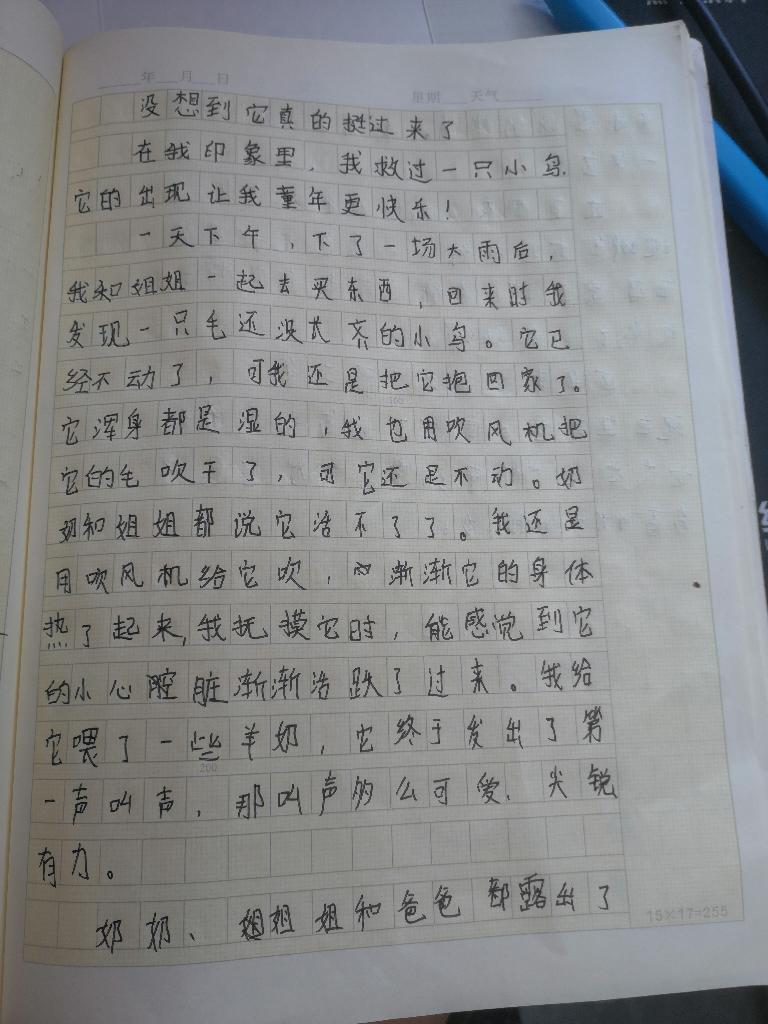 年 月 日
星期 天气
没想到它真的挺过来了
在我印象里，我救过一只小鸟
它的出现让我童年更快乐！
一天下午，下了一场大雨后，
我和姐姐一起去买东西，回来时我
发现一只毛还没长齐的小鸟。它已
经不动了，可我还是把它抱回家了。
它浑身都是湿的，我也用吹风机把
它的毛吹干了，可它还是不动。奶
奶和姐姐都说它活不了了。我还是
用吹风机给它吹，渐渐它的身体
热了起来，我抚摸它时，能感觉到它
的小心脏渐渐活跌了过来。我给
它喂了一些羊奶，它终于发出了第
200
一声叫声，那叫声多么可爱、尖锐
有力。
奶奶、姐姐和爸爸都露出了
15×17=255